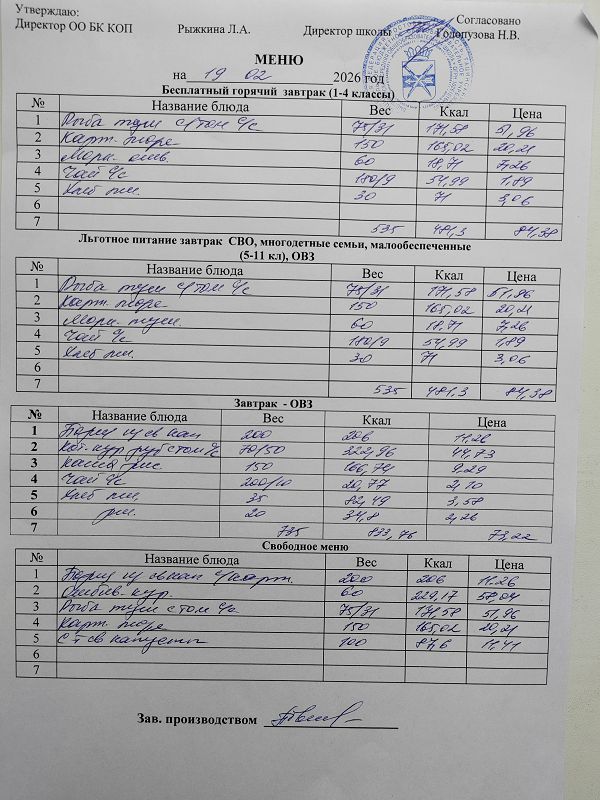 Утверждаю:
Директор ОО БК КОП Рыжкина Л.А. Директор школы Согласовано
Годопузова Н.В.
МЕНЮ
на 19 02 2026 год
Бесплатный горячий завтрак (1-4 классы)
№ Название блюда Вес Ккал Цена
1 Рыба туш с/том с/с 75/31 171,58 51,96
2 Карт. пюре 150 165,02 20,21
3 Морк. 60 18,71 7,26
4 Чай с/с 180/9 54,99 1,89
5 Хлеб пш. 30 71 3,06
6
7 535 481,3 84,38
Льготное питание завтрак СВО, многодетные семьи, малообеспеченные
(5-11 кл), ОВЗ
№ Название блюда Вес Ккал Цена
1 Рыба туш с/том с/с 75/31 171,58 51,96
2 Карт. пюре 150 165,02 20,21
3 Морк. туш. 60 18,71 7,26
4 Чай с/с 180/9 54,99 1,89
5 Хлеб пш. 30 71 3,06
6
7 535 481,3 84,38
Завтрак - ОВЗ
№ Название блюда Вес Ккал Цена
1 Борщ из св кап 200 206 11.26
2 Кот. кур руб с том с/с 70/50 322,96 44,73
3 Каша рис. 150 166,74 9.29
4 Чай с/с 200/10 20,77 2,10
5 Хлеб пш. 35 82,49 3,58
6 рж. 20 34,8 2,26
7 735 833,76 73,22
Свободное меню
№ Название блюда Вес Ккал Цена
1 Борщ из св кап с/карт. 200 206 11.26
2 кур. 60 229,17 58,04
3 Рыба туш с том с/с. 75/31 171,58 51,96
4 Карт. пюре 150 165,02 20,21
5 С-т св капусты 100 87,6 11,41
6
7
Зав. производством